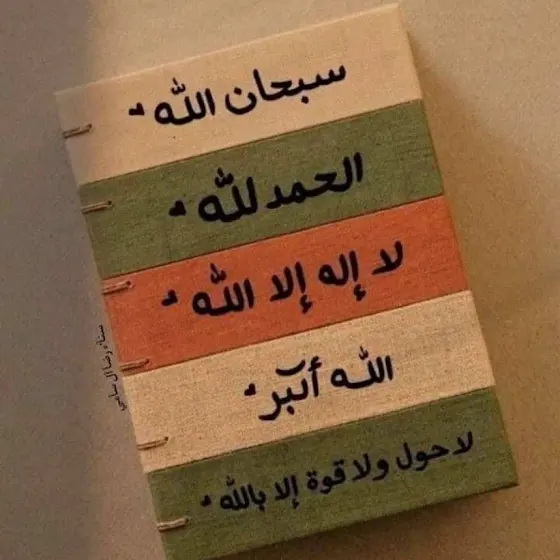 سبحان الله
الحمد لله
لا إله إلا الله
الله أكبر
لا حول ولا قوة إلا بالله
سناء رضا ال سامي